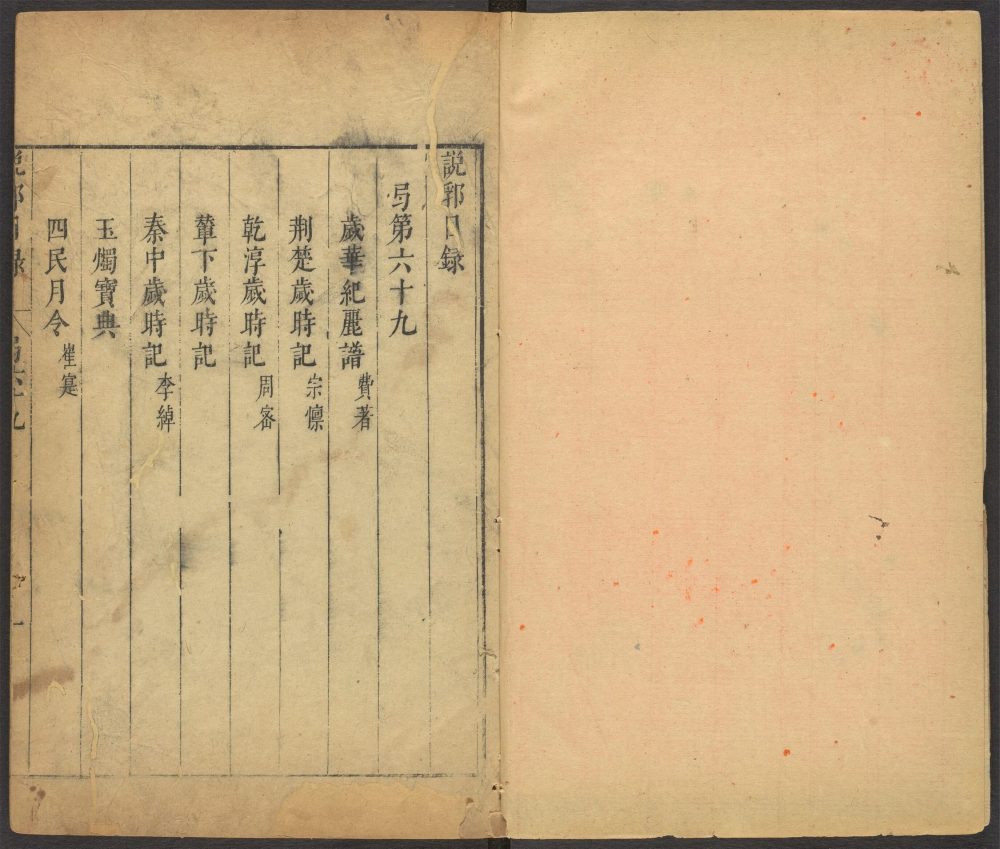 說郛目錄
弓第六十九
歲華紀麗譜 費著
荆楚歲時記 宗懍
乾淳歲時記 周密
輦下歲時記
秦中歲時記 李綽
玉燭寶典
四民月令 崔寔
說郛目錄